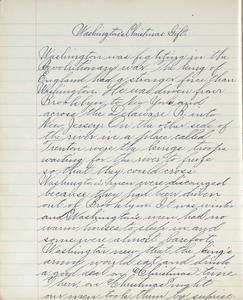 Washington's Christmas Gift
Washington was fighting in the
Revolutionary war. The king of
England had a stronger force than
Washington. He was driven from
Brooklyn, to New York and
across the Delaware R. into
New Jersey. On the other side of
the river in a place called
Trenton were the kings troops
waiting for the river to freeze
so that they could cross
Washington's men were discouraged
because they had been driven
out of Brooklyn. It was winter
and Washington's men had no
warm clothes to sleep in and
some were almost barefoot.
Washington knew that the king's
army would eat and drink
a good deal on Christmas
then, on Christmas night
our men took them by surprise